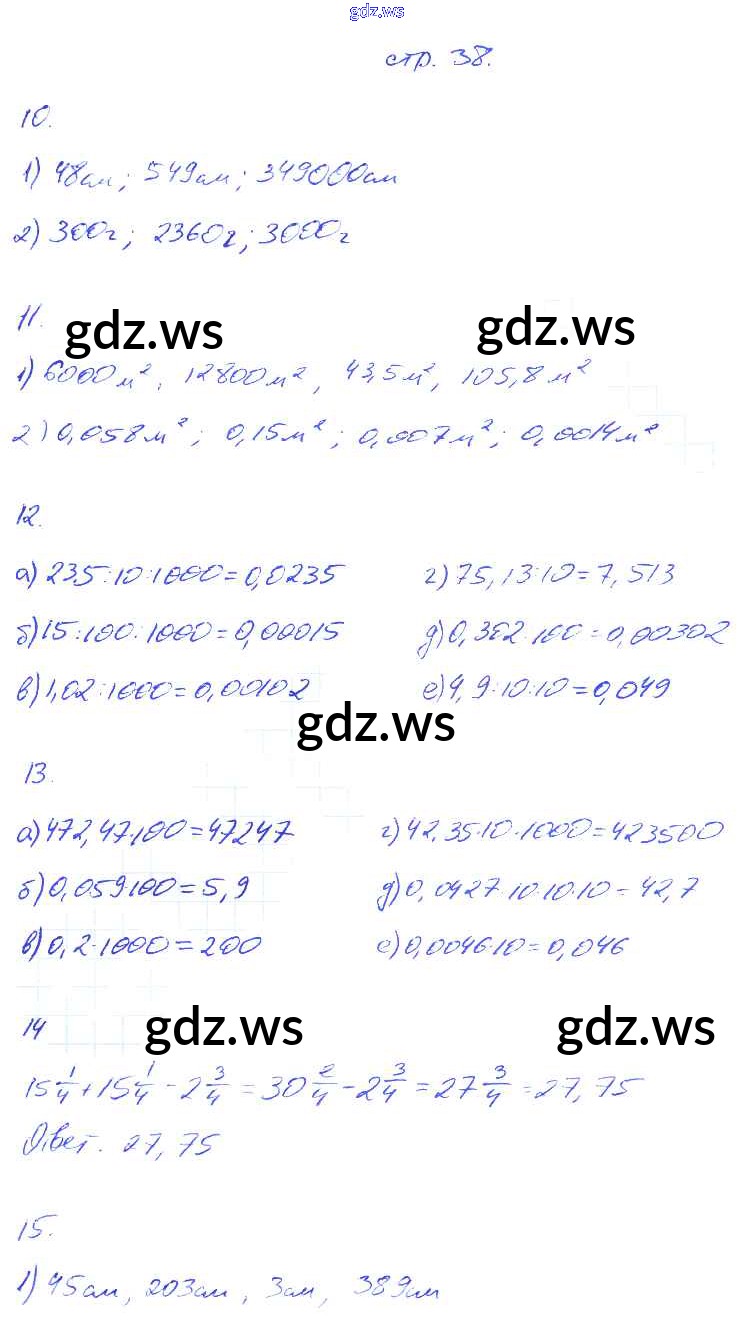 gdz.ws
стр. 38.
10.
1) 48см; 549см; 349000см
2) 300г; 2360г; 3000г
11.
gdz.ws gdz.ws
1) 6000м², 12800м², 43,5м², 105,8м²
2) 0,058м²; 0,15м²; 0,007м²; 0,0014м²
12.
а) 235:10:1000=0,0235 г) 75,13:10=7,513
б) 15:100:1000=0,00015 д) 0,302:100=0,00302
в) 1,02:1000=0,00102 е) 4,9:10:10=0,049
gdz.ws
13.
а) 472,47·100=47247 г) 42,35·10·1000=423500
б) 0,059·100=5,9 д) 0,0427·10·10·10=42,7
в) 0,2·1000=200 е) 0,0046·10=0,046
14 gdz.ws gdz.ws
15 1/4 + 15 1/4 - 2 3/4 = 30 2/4 - 2 3/4 = 27 3/4 = 27,75
Ответ. 27,75
15.
1) 45см, 203см, 3см, 389см